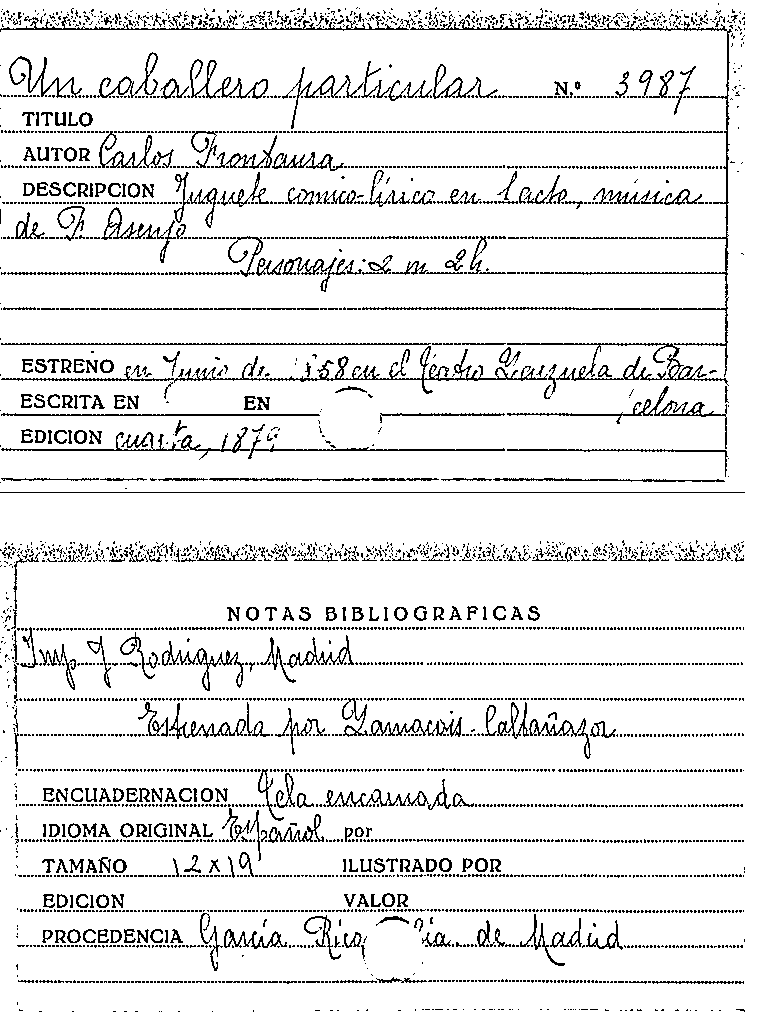 Un caballero particular N.º 3987
TITULO
AUTOR Carlos Frontaura
DESCRIPCION Juguete comico-lírico en 1 acto, música
de F. Asenjo
Personajes: 2 m 2h.
ESTRENO en Junio de 1858 en el Teatro Zarzuela de Bar-
ESCRITA EN EN celona
EDICION cuarta, 1879
NOTAS BIBLIOGRAFICAS
Imp J Rodriguez, Madrid
Estrenada por Zamacois-Caltañazor
ENCUADERNACION Tela encarnada
IDIOMA ORIGINAL Español por
TAMAÑO 12x19 ILUSTRADO POR
EDICION VALOR
PROCEDENCIA García Rico de Madrid